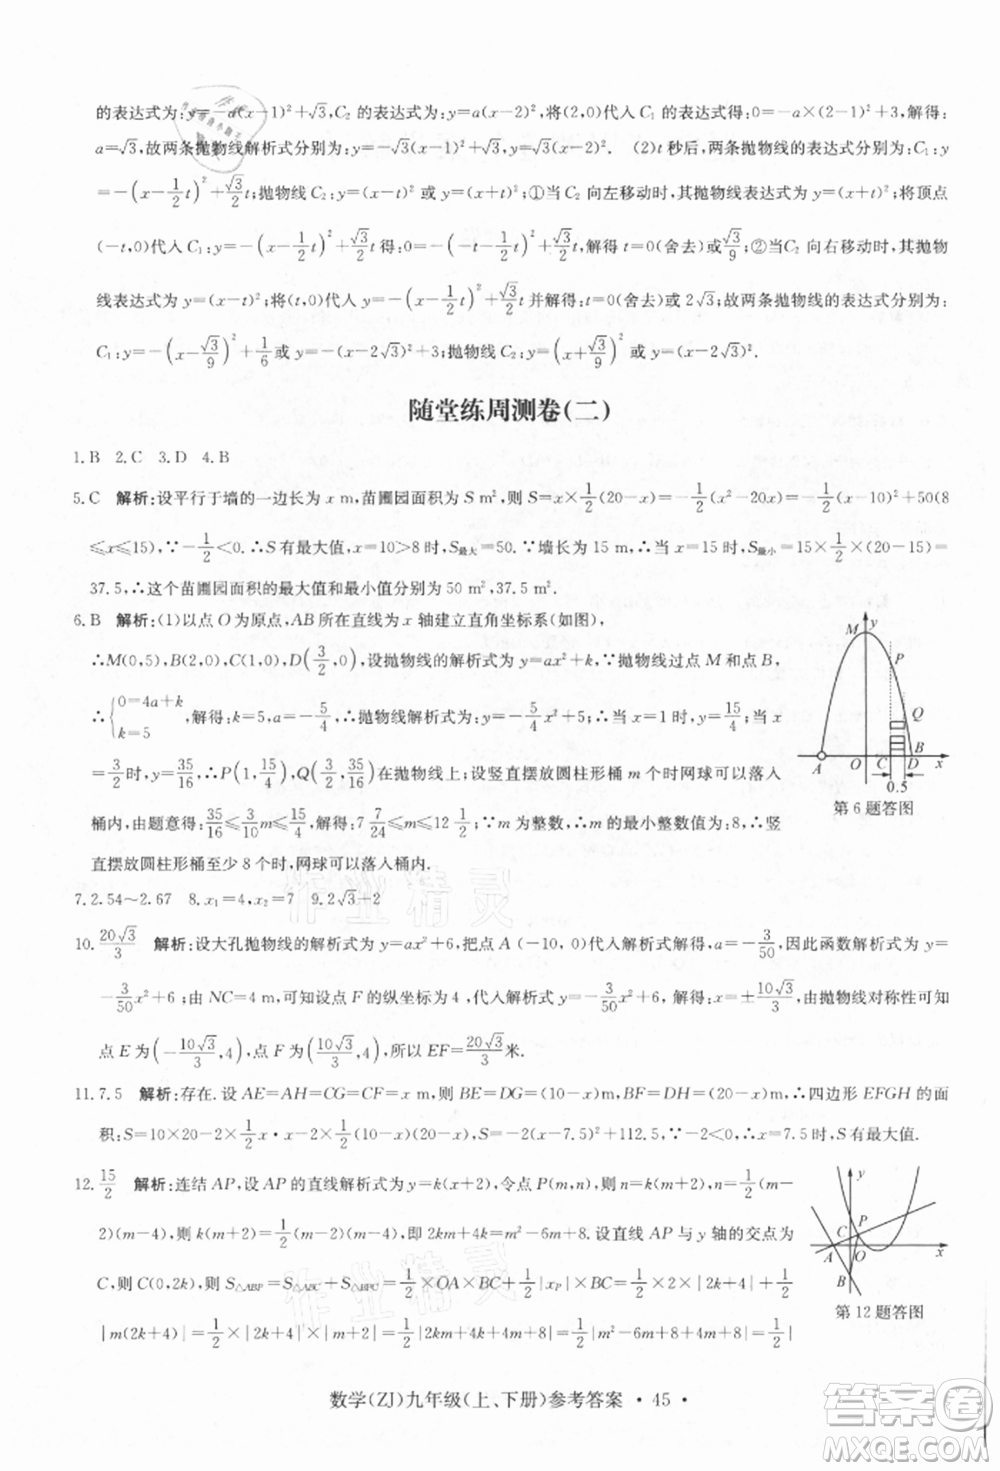 的表达式为:y=-a(x-1)²+√3,C₂ 的表达式为:y=a(x-2)²,将(2,0)代入 C₁ 的表达式得:0=-a×(2-1)²+3,解得:
a=√3,故两条抛物线解析式分别为:y=-√3(x-1)²+√3 或 y=√3(x-2)². (2)t 秒后,两条抛物线表达式分别为:C₁:y
=-(x-1/2 t)²+√3/2 t;抛物线 C₂:y=(x-t)² 或 y=(x+t)²;①当 C₂ 向左移动时,抛物线表达式为:y=(x+t)²;将点
(-t,0)代入 C₁:y=-(x-1/2 t)²+√3/2 t 得:0=-(x-1/2 t)²+√3/2 t,解得 t=0(舍去)或√3/9;②当 C₂ 向右移动时,抛物
线表达式为:y=(x-t)²;将(t,0)代入 y=-(x-1/2 t)²+√3/2 t 并解得:t=0(舍去)或 2√3,故两条抛物线的表达式分别为:
C₁:y=-(x-√3/9)²+1/6 或 y=-(x-2√3)²+6;抛物线 C₂:y=(x+√3/9)² 或 y=(x-2√3)².
随堂练周测卷(二)
1.B 2.C 3.D 4.B
5.C 解析:设平行于墙的一边长为 x m,苗圃园面积为 S m²,则 S=x×1/2(20-x)=-1/2(x²-20x)=-1/2(x-10)²+50(8
≤x≤15),∵-1/2<0.∴S有最大值,x=10>8 时,S最大=50.∵墙长为 15 m,∴当 x=15 时,S最小,S最小=15×1/2×(20-15)=
37.5,∴这个苗圃园面积的最大值和最小值分别为 50 m²,37.5 m².
6.B 解析:(1)以点 O 为原点,AB所在直线为 x 轴建立直角坐标系(如图),
∴M(0,5),B(2,0),C(1,0),D(3/2,0),设抛物线的解析式为 y=ax²+k,∵抛物线过点 M 和点 B,
∴{0=4a+k k=5,解得:k=5,a=-5/4,∴抛物线解析式为:y=-5/4x²+5;∴当 x=1 时,y=15/4;当 x
=3/2时,y=35/16;∴P(1,15/4),Q(3/2,35/16)在抛物线上;设竖直摆放圆柱形桶 m 个时网球可以落入
桶内,由题意得:35/16≤3/10 m≤15/4,解得:7 7/24≤m≤12 1/2;∵m 为整数,∴m 的最小整数值为:8,∴竖
直摆放圆柱形桶至少 8 个时,网球可以落入桶内.
M
y
P
Q
A O C D B x
0.5
第 6 题答图
7.2.54～2.67 8.x₁=4,x₂=7 9.2√3-2
10.20√3/3 解析:设大孔抛物线的解析式为 y=ax²+6,把点 A(-10,0)代入解析式解得 a=-3/50,因此函数解析式为 y=
-3/50x²+6;由 NC=4 m,可设点 F 的纵坐标为 4,代入解析式 y=-3/50x²+6,解得:x=±10√3/3,由抛物线对称性可知
点 E 为(-10√3/3,4),点 F 为(10√3/3,4),所以 EF=20√3/3米.
11.7.5 解析:存在.设 AE=AH=CG=CF=x m,则 BE=DG=(10-x)m,BF=DH=(20-x)m,∴四边形 EFGH 的面
积:S=10×20-2×1/2x·x-2×1/2(10-x)(20-x),S=-2(x-7.5)²+112.5,∵-2<0,∴x=7.5 时,S有最大值.
12.15/2 解析:连结 AP,设 AP 的直线解析式为 y=k(x+2),令点 P[m,1/2(m+2)(m-4)],则 k(m+2)=1/2(m+
2)(m-4),整理得:km+2k=1/2m²-m-4,∴2km+4k=m²-2m-8,∴2km=m²-2m-8-4k.设直线 AP 与 y 轴的交点为
C,则 C(0,2k),∴S△ABP=S△ABC+S△BPC=1/2×OA×BC+1/2|m|BC=1/2×2|2k+4|+1/2|m(2k+4)|=1/2×
|m(2k+4)+2(2k+4)|=1/2×|2km+4m+4k+8|=1/2×|m²-2m-8-4k+4m+4k+8|=1/2×|m²+2m|
y
C P
A O x
B
第 12 题答图
数学(ZJ)九年级(上、下册)参考答案 · 45 ·
作业精灵
作业精灵
答案圈
MXQE.COM